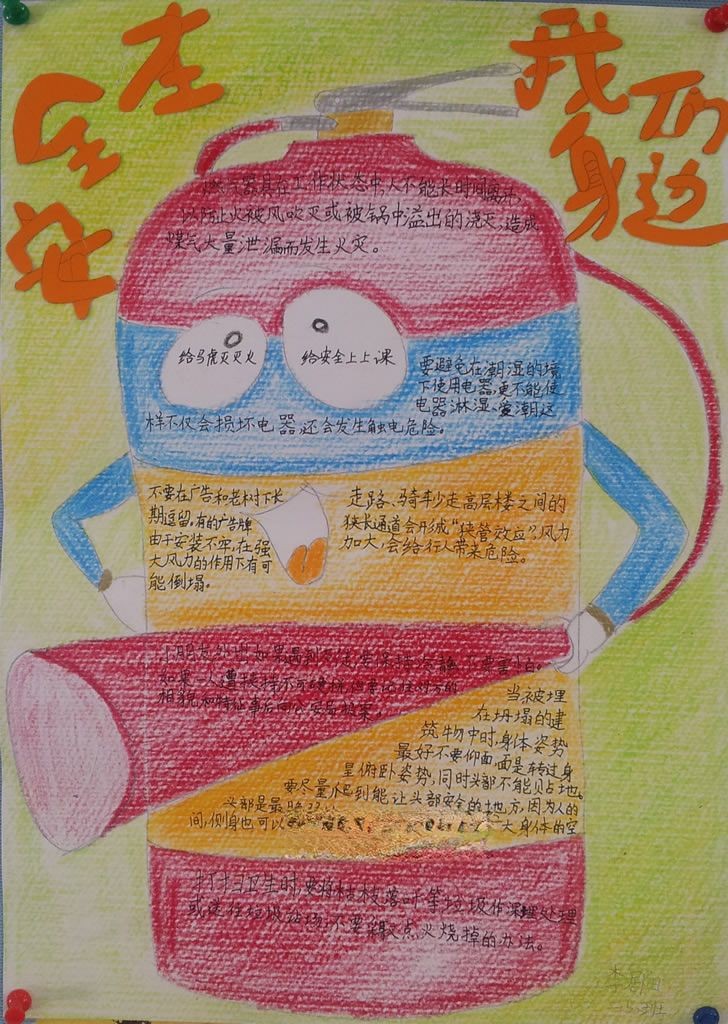 安全在
我们身边
燃气器具在工作状态中,人不能长时间离开,
以防止火被风吹灭或被锅中溢出的浇灭,造成
煤气大量泄漏而发生火灾。
给马虎灭灭火
给安全上上课
要避免在潮湿的境
下使用电器,更不能使
电器淋湿、受潮这
样不仅会损坏电器,还会发生触电危险。
不要在广告和老树下长
期逗留,有的广告牌
由于安装不牢,在强
大风力的作用下有可
能倒塌。
走路、骑车少走高层楼之间的
狭长通道会形成“狭管效应”,风力
加大,会给行人带来危险。
小朋友外出如果遇到
要保持
不要害怕。
如果一人遭挟持不可硬抗
要记住对方的
相貌和特征事后向公安局报案。
当被埋
在坍塌的建
筑物中时,身体姿势
最好不要仰面面是转过身
呈俯卧姿势,同时头部不能贝占地。
要尽量爬到能让头部安全的地方,因为人的
头部是最
间,侧身也可以
大身体的空
打扫卫生时,要将枯枝落叶等垃圾作深埋处理
或送往垃圾站场,不要采取点火烧掉的办法。